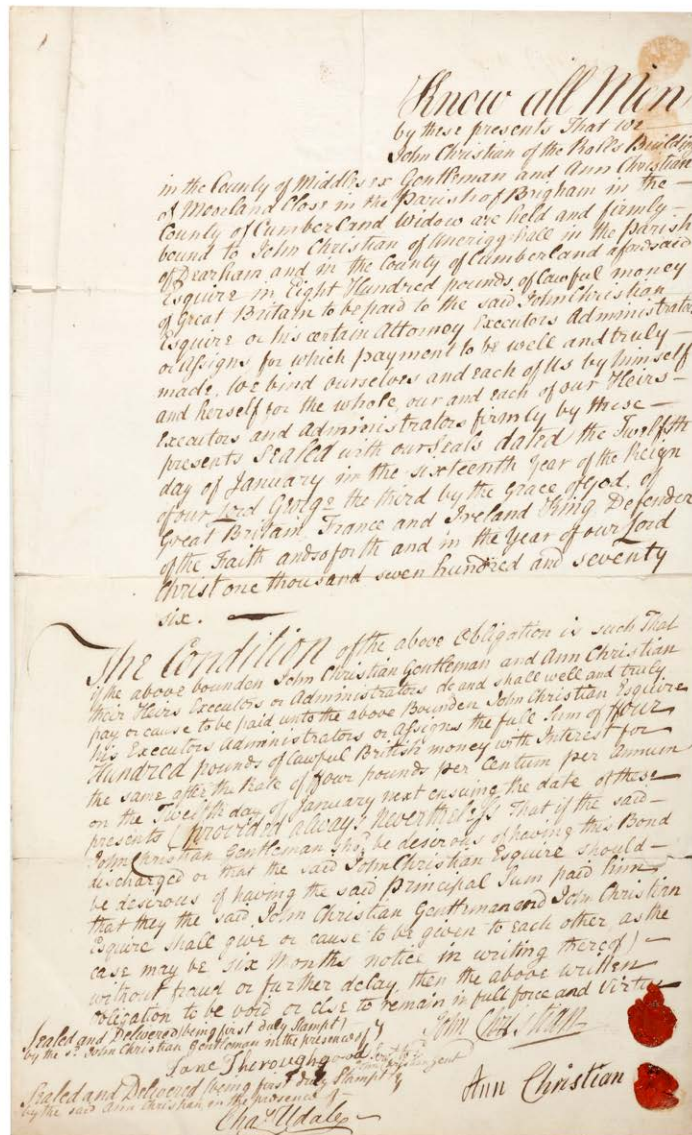 Know all Men
by these presents That we
John Christian of the Rolls Building
in the County of Middlesex Gentleman and Ann Christian
of Mooreland Close in the parish of Brigham in the —
County of Cumberland Widow are held and firmly —
bound to John Christian of Unerigg-hall in the parish
of Dearham and in the County of Cumberland aforesaid
Esquire in Eight Hundred pounds of lawful money
of Great Britain to be paid to the said John Christian
Esquire or his certain Attorney Executors Administrators
or Assigns for which payment to be well and truly —
made, We bind ourselves and each of Us by himself
and herself for the whole, our and each of our Heirs —
Executors and Administrators firmly by these —
presents Sealed with our Seals dated the Twelfth
day of January in the sixteenth Year of the Reign
of our Lord George the third by the Grace of God, of
Great Britain, France and Ireland King Defender
of the Faith and so forth and in the Year of our Lord
Christ one thousand seven hundred and seventy
six. —
The Condition of the above Obligation is such That
if the above bounden John Christian Gentleman and Ann Christian
their Heirs Executors or Administrators do and shall well and truly
pay or cause to be paid unto the above Bounden John Christian Esquire
his Executors Administrators or Assigns the full Sum of four
Hundred pounds of lawful British money with Interest for
the same after the Rate of four pounds per Centum per Annum
on the Twelfth day of January next ensuing the date of these
presents (provided always nevertheless That if the said —
John Christian Gentleman shod be desirous of having this Bond
discharged or that the said John Christian Esquire should —
be desirous of having the said principal Sum paid him
that they the said John Christian Gentleman and John Christian
Esquire shall give or cause to be given to each other, as the
case may be six Months notice in writing thereof) —
without fraud or further delay then the above written
obligation to be void or else to remain in full force and Virtue
Sealed and Delivered (being first duly Stampt)
by the sd. John Christian Gentleman in the presence of
John Christian
Jane Thoroughgood
Sealed and Delivered (being first duly Stampt)
by the said Ann Christian in the presence of
Ann Christian
Chas. Udale